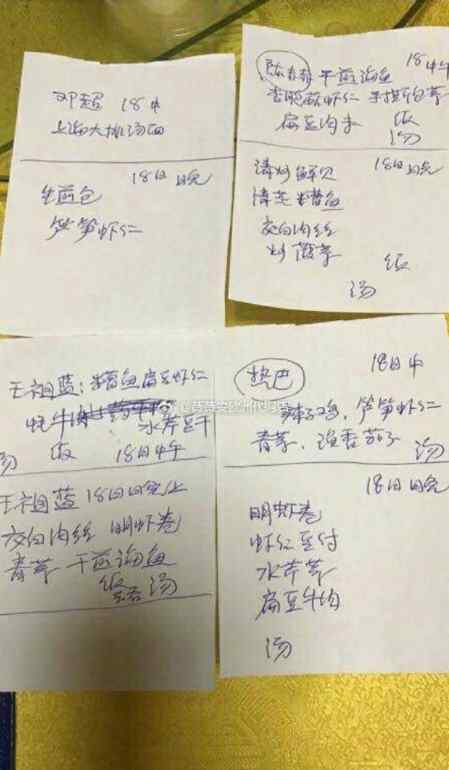 邓超 18中
上海大排汤面
18日晚
生煎包
笋笋虾仁
18中午
干煎海鱼
虾仁 手撕包菜
扁豆肉末 饭
汤
清炒鲜贝 18日晚
清蒸 糟鱼
交白肉丝
炒菠菜
饭
汤
王祖蓝:糟鱼 扁豆虾仁
水芹豆干
汤 饭 18日中午
王祖蓝 18日晚上
交白肉丝 明虾卷
青菜 干煎海鱼
饭 汤
热巴 18日中
辣子鸡,笋笋虾仁
青菜,鱼香茄子 汤
18日晚
明虾卷
虾仁豆付
水芹菜
扁豆牛肉
汤